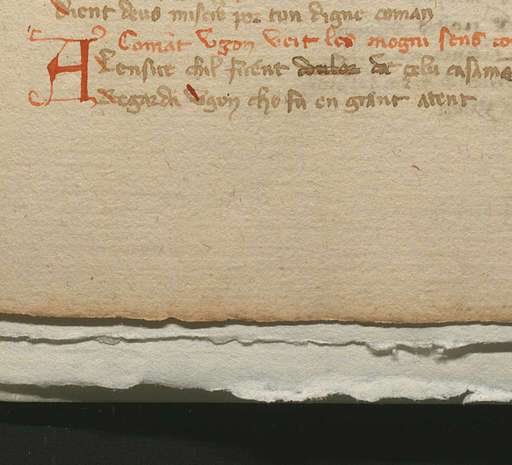 dient deus miserē por ton digne coman
Comāt Vgon veit les mogni sens co
A Lensire chil ficent de celu casame
Regarda Vgon che fu en grant atent